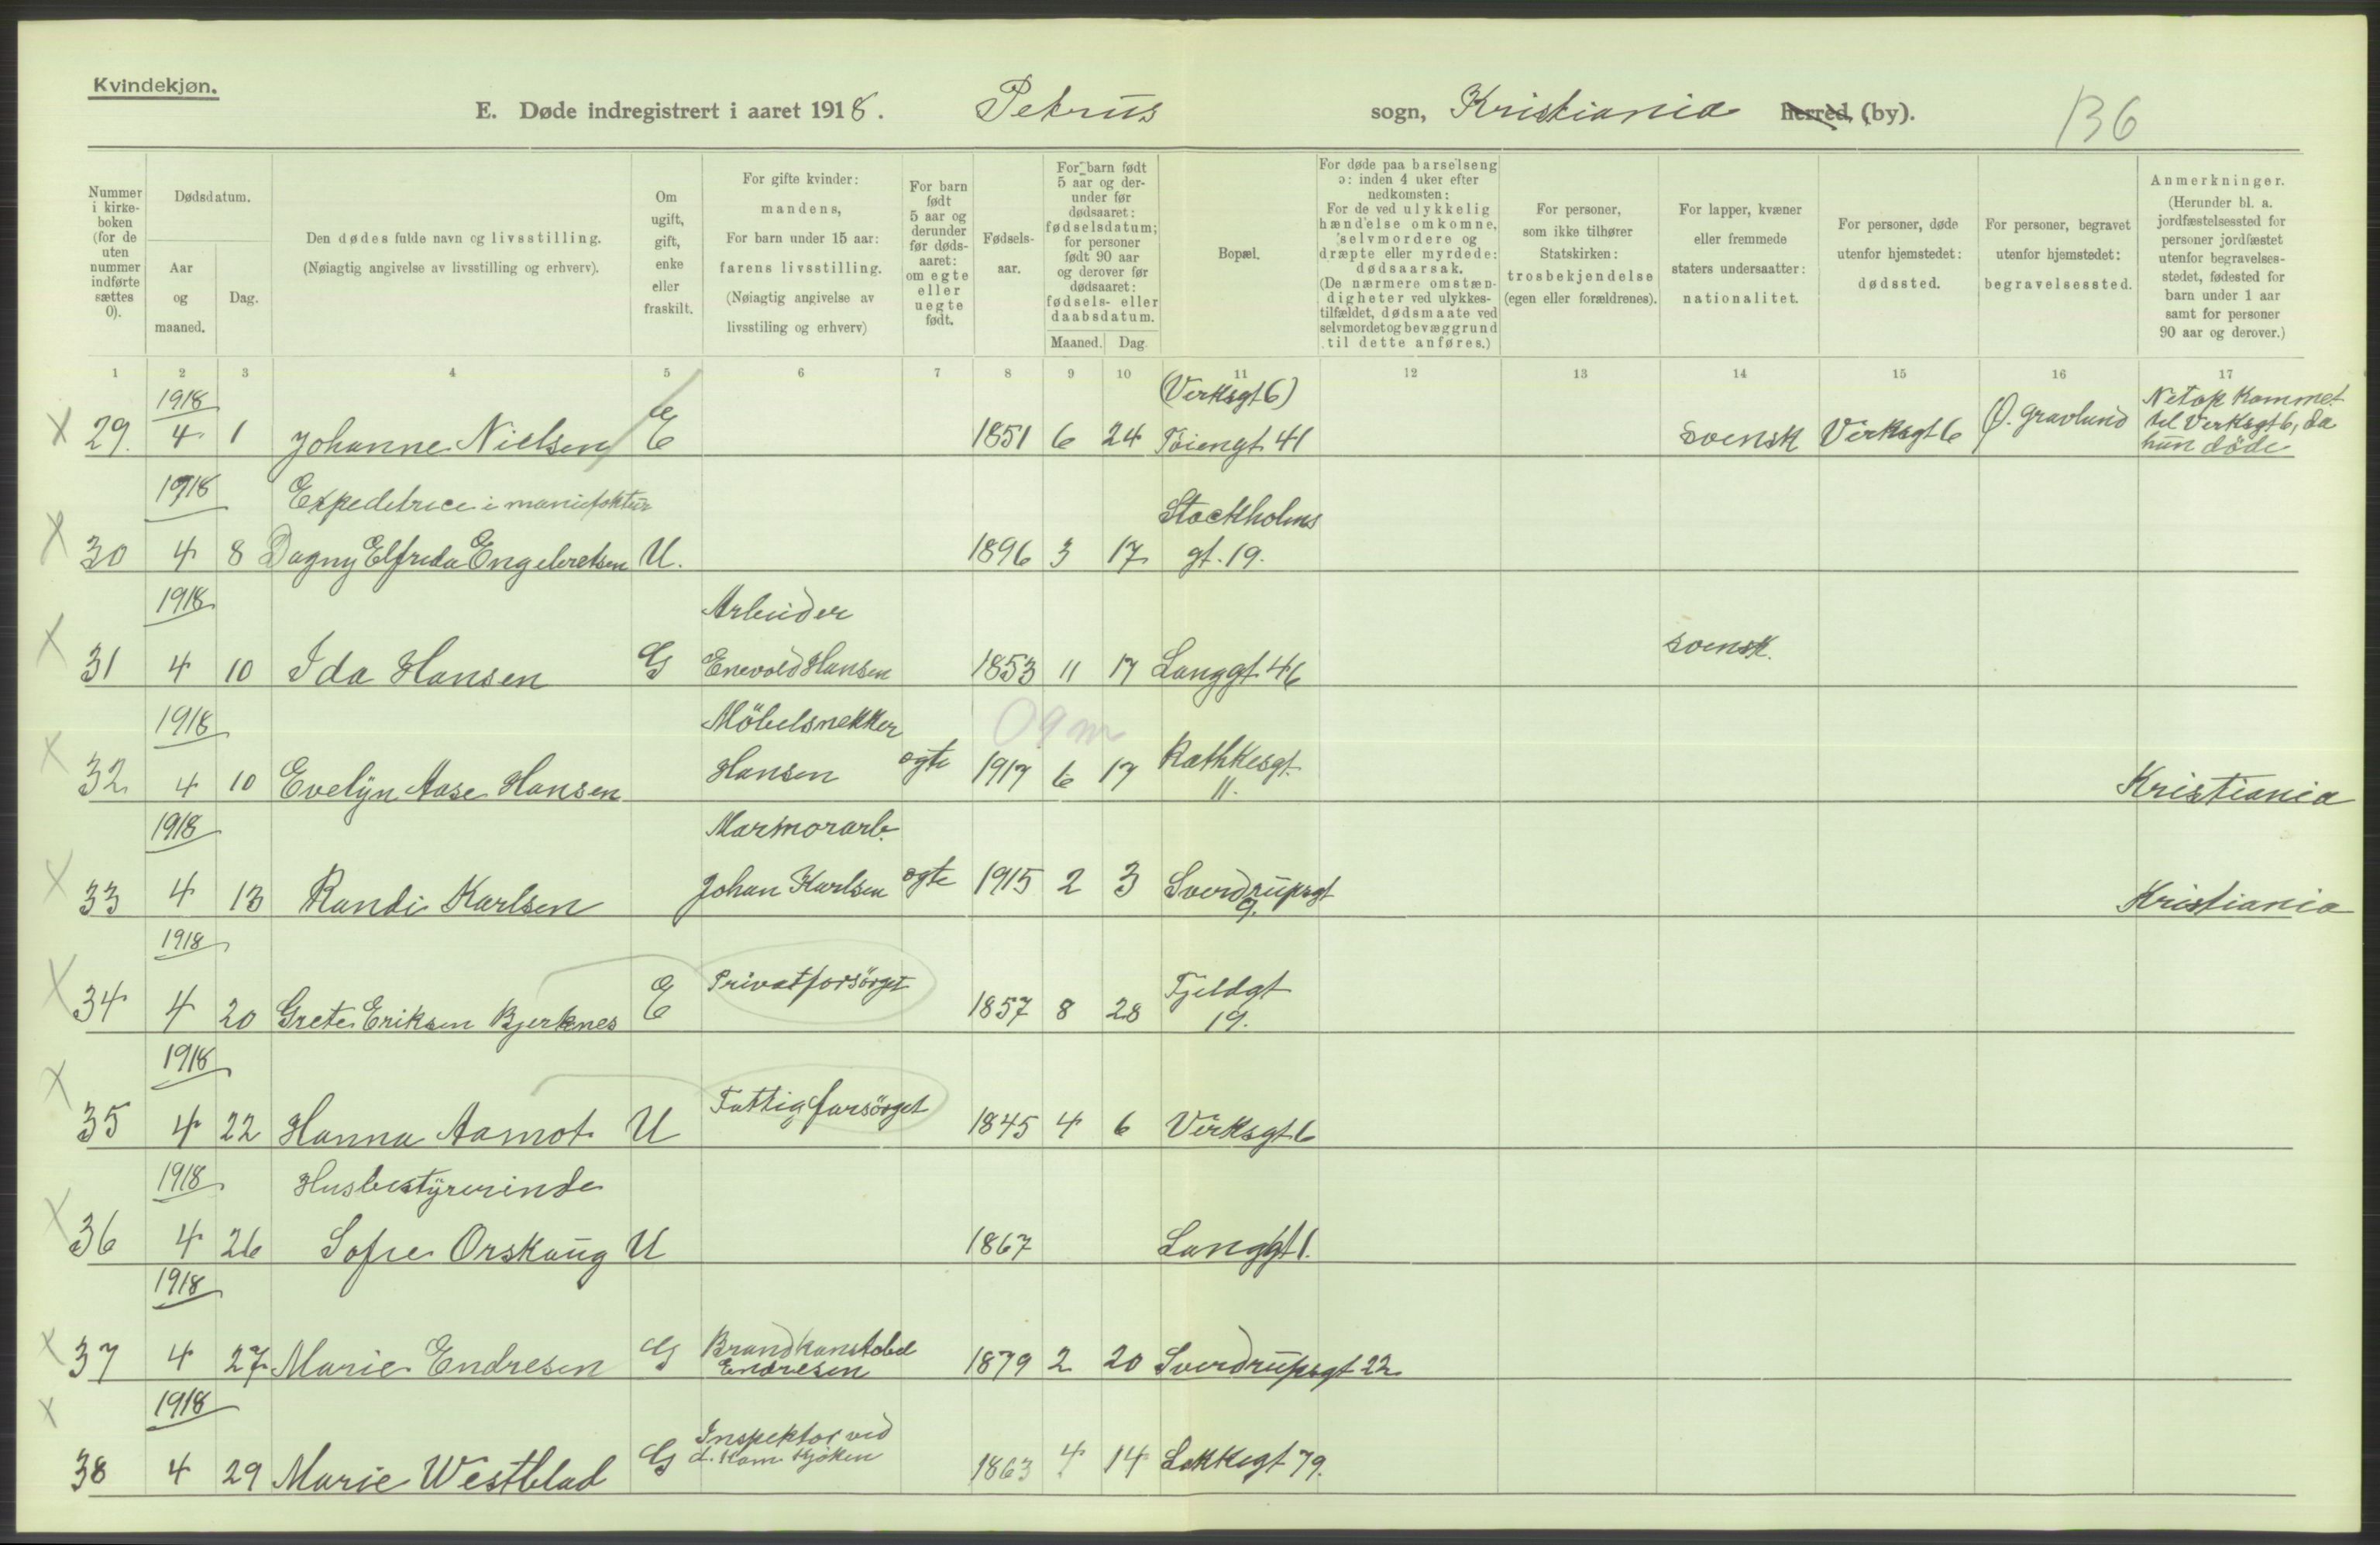 Kvindekjøn.
E. Døde indregistrert i aaret 1918. Petrus sogn, Kristiania herred, (by). 136
Nummer i kirkeboken (for de uten nummer indførte sættes 0).
Dødsdatum.
Aar og maaned.
Dag.
Den dødes fulde navn og livsstilling.
(Nøiagtig angivelse av livsstilling og erhverv).
Om ugift, gift, enke eller fraskilt.
For gifte kvinder: mandens,
For barn under 15 aar: farens livsstilling.
(Nøiagtig angivelse av livsstiling og erhverv)
For barn født 5 aar og derunder før dødsaaret: om egte eller uegte født.
Fødselsaar.
For barn født 5 aar og derunder før dødsaaret: fødselsdatum; for personer født 90 aar og derover før dødsaaret: fødsels- eller daabsdatum.
Maaned. Dag.
Bopæl.
For døde paa barselseng ɔ: inden 4 uker efter nedkomsten:
For de ved ulykkelig hændelse omkomne, selvmordere og dræpte eller myrdede: dødsaarsak.
(De nærmere omstændigheter ved ulykkestilfældet, dødsmaate ved selvmordet og bevæggrund til dette anføres.)
For personer, som ikke tilhører Statskirken: trosbekjendelse (egen eller forældrenes).
For lapper, kvæner eller fremmede staters undersaatter: nationalitet.
For personer, døde utenfor hjemstedet: dødssted.
For personer, begravet utenfor hjemstedet: begravelsessted.
Anmerkninger.
(Herunder bl. a. jordfæstelsessted for personer jordfæstet utenfor begravelsesstedet, fødested for barn under 1 aar samt for personer 90 aar og derover.)
1 2 3 4 5 6 7 8 9 10 11 12 13 14 15 16 17
1918 (Verksgt 6) Netop kommet
X 29. 4 1 Johanne Nielsen E 1851 6 24 Töiengt 41 svensk Verksgt 6 Ø. Gravlund til Verksgt 6, da
hun döde
1918 Expeditrice i manufaktur Stockholms
X 30 4 8 Dagny Elfrida Engebretsen U. 1896 3 17 gt. 19.
1918 Arbeider
X 31 4 10 Ida Hansen G Enevold Hansen 1853 11 17 Langgt 46 svensk.
1918 Möbelsnekker 09 m
X 32 4 10 Evelyn Aase Hansen Hansen egte 1917 6 17 Rathkesgt. 11. Kristiania
1918 Marmorarb.
X 33 4 13 Randi Karlsen Johan Karlsen egte 1915 2 3 Sverdrupsgt 9. Kristiania
1918
X 34 4 20 Grete Eriksen Bjerknes E Privatforsörget 1857 8 28 Fjeldgt 19.
1918
X 35 4 22 Hanna Aamot U Fattigforsörget 1845 4 6 Verksgt 6
1918 Husbestyrerinde
X 36 4 26 Sofie Orskaug U 1867 Langgt 1.
1918
X 37 4 27 Marie Endresen G Brandkonstabel Endresen 1879 2 20 Sverdrupsgt 22
1918 Inspektor ved
X 38 4 29 Marie Westblad G d. Kom. Kjöken 1863 4 14 Lakkegt 79.